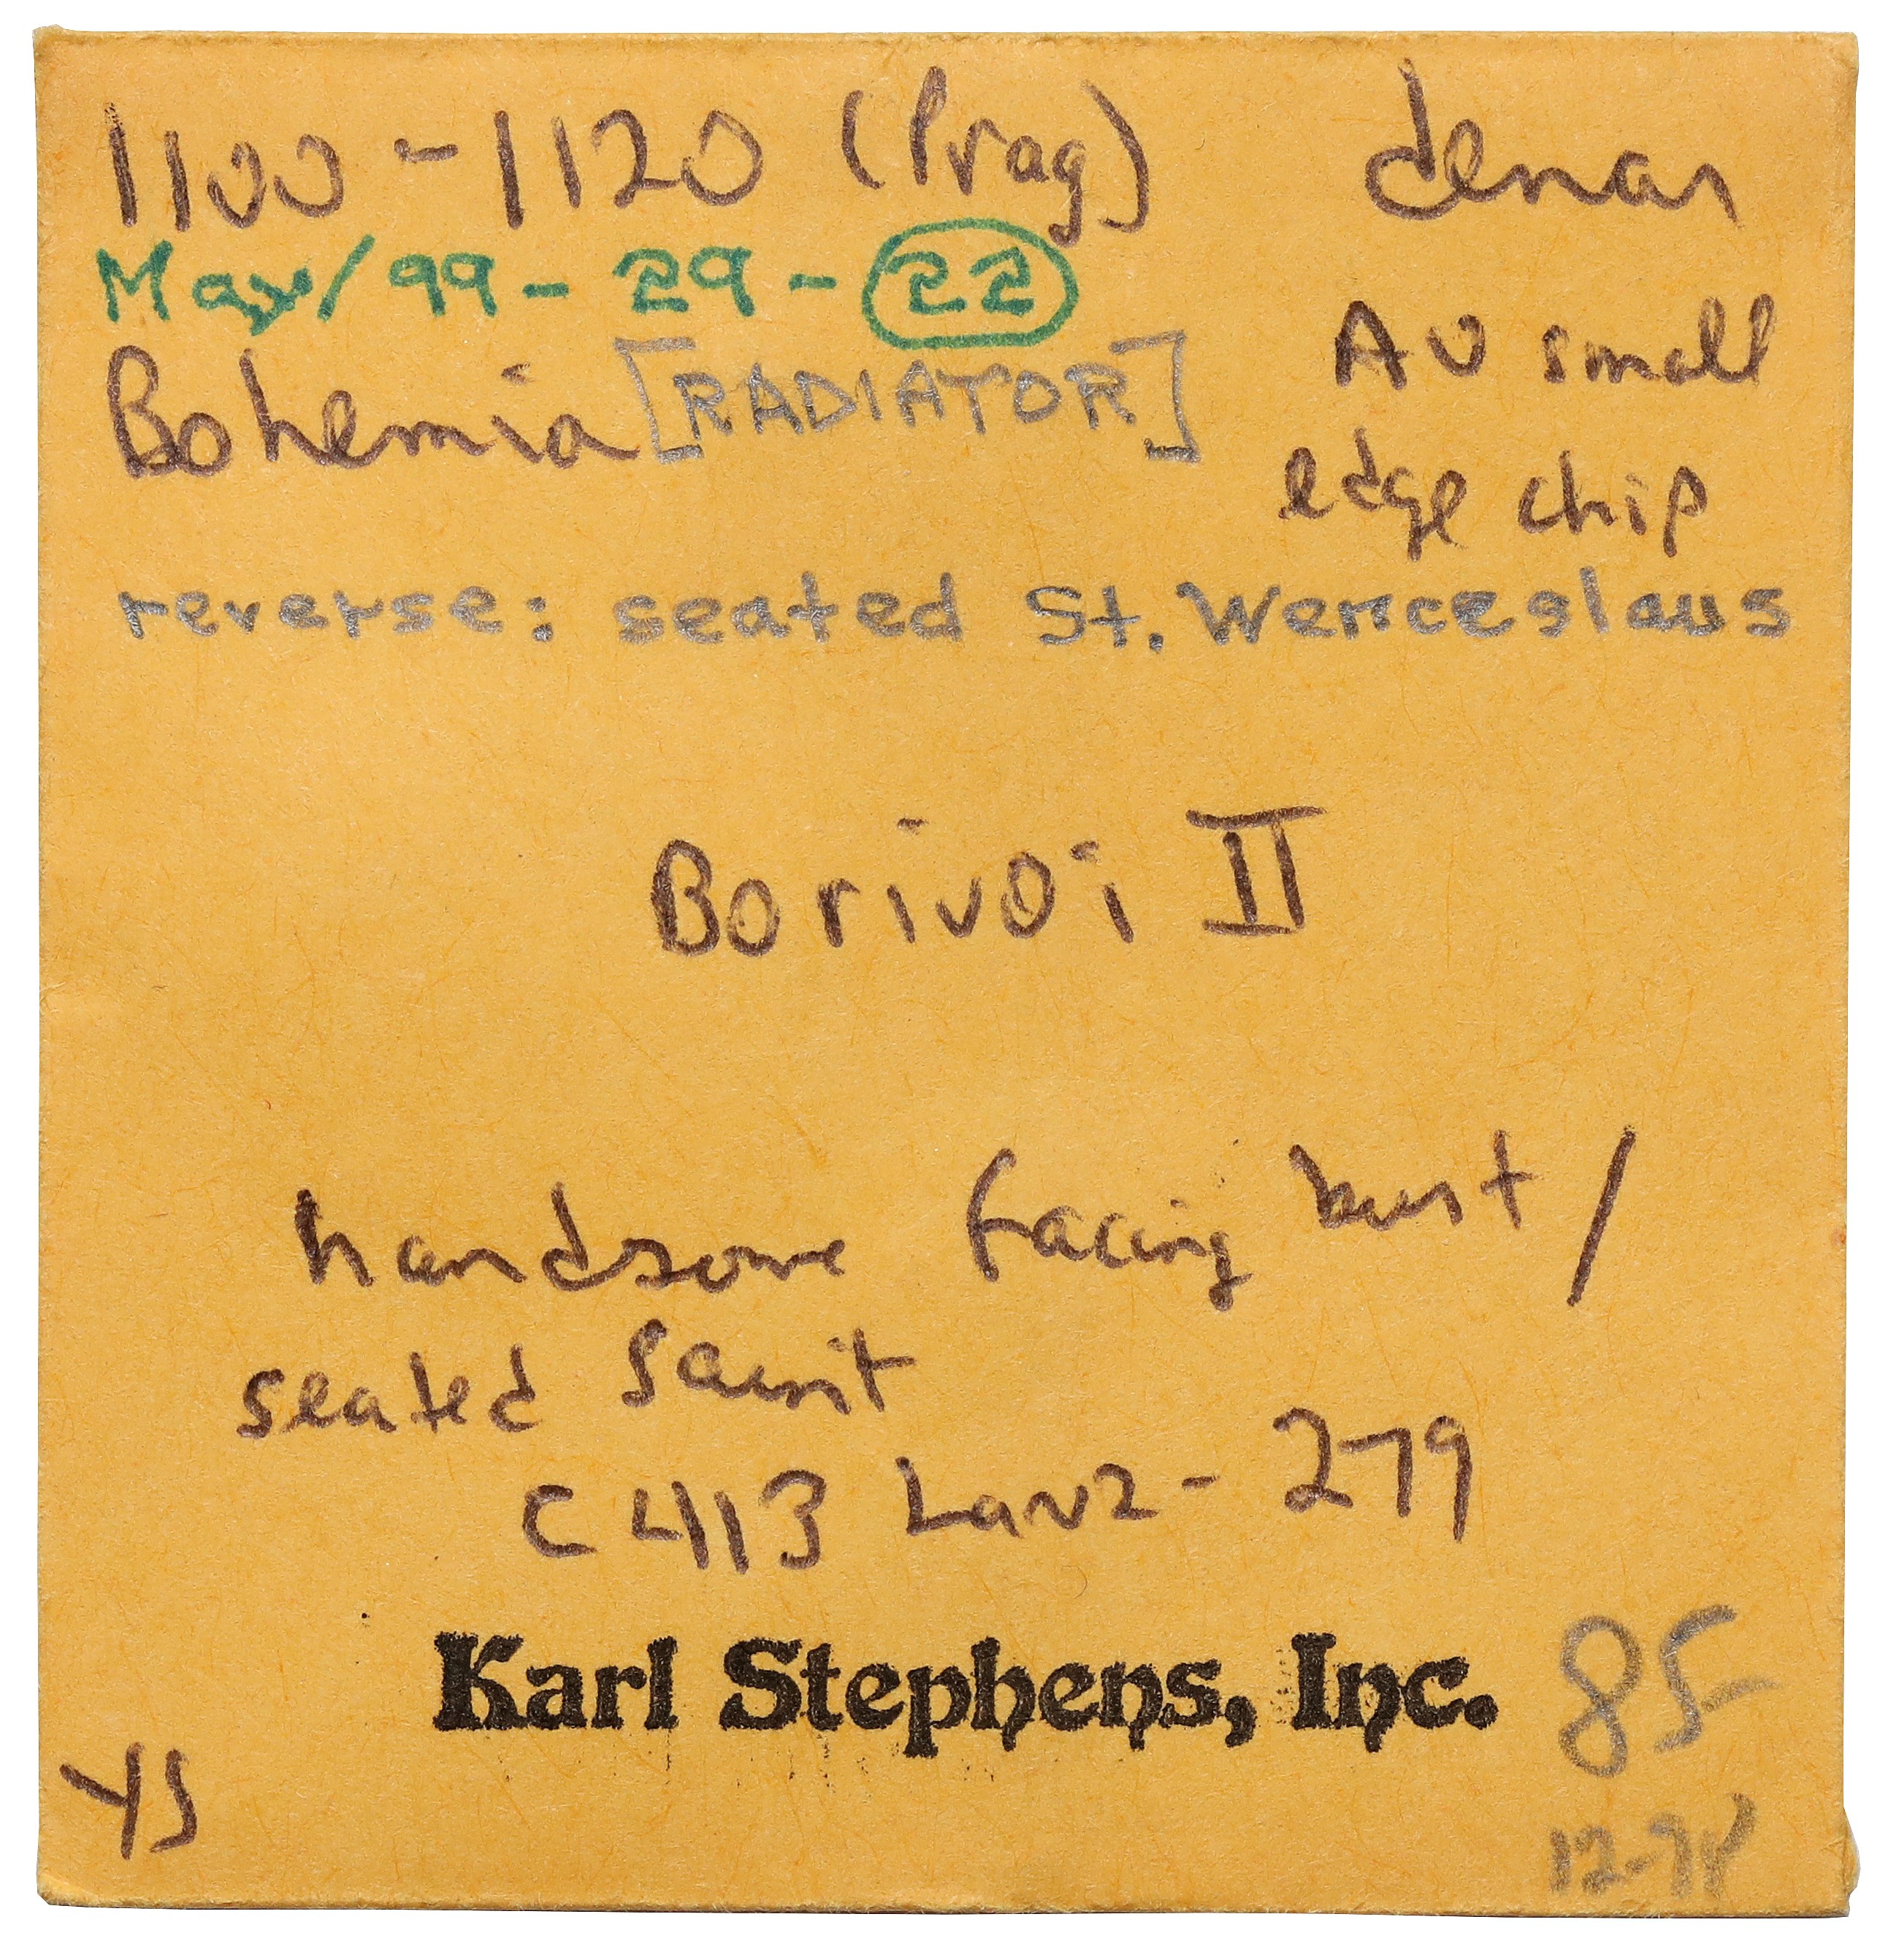 1100-1120 (Prag) denar
May/99-29-22
AU small
Bohemia [RADIATOR]
edge chip
reverse: seated St. Wenceslaus
Borivoi II
handsome facing bust /
seated Saint
C 413 Lanz-279
Karl Stephens, Inc. 85-
YS